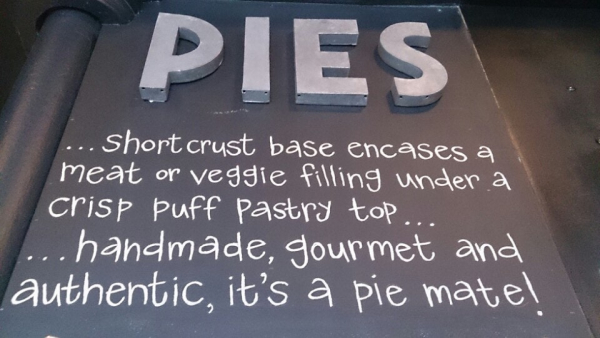 PIES
...shortcrust base encases a
meat or veggie filling under a
crisp puff pastry top...
...handmade, gourmet and
authentic, it's a pie mate!